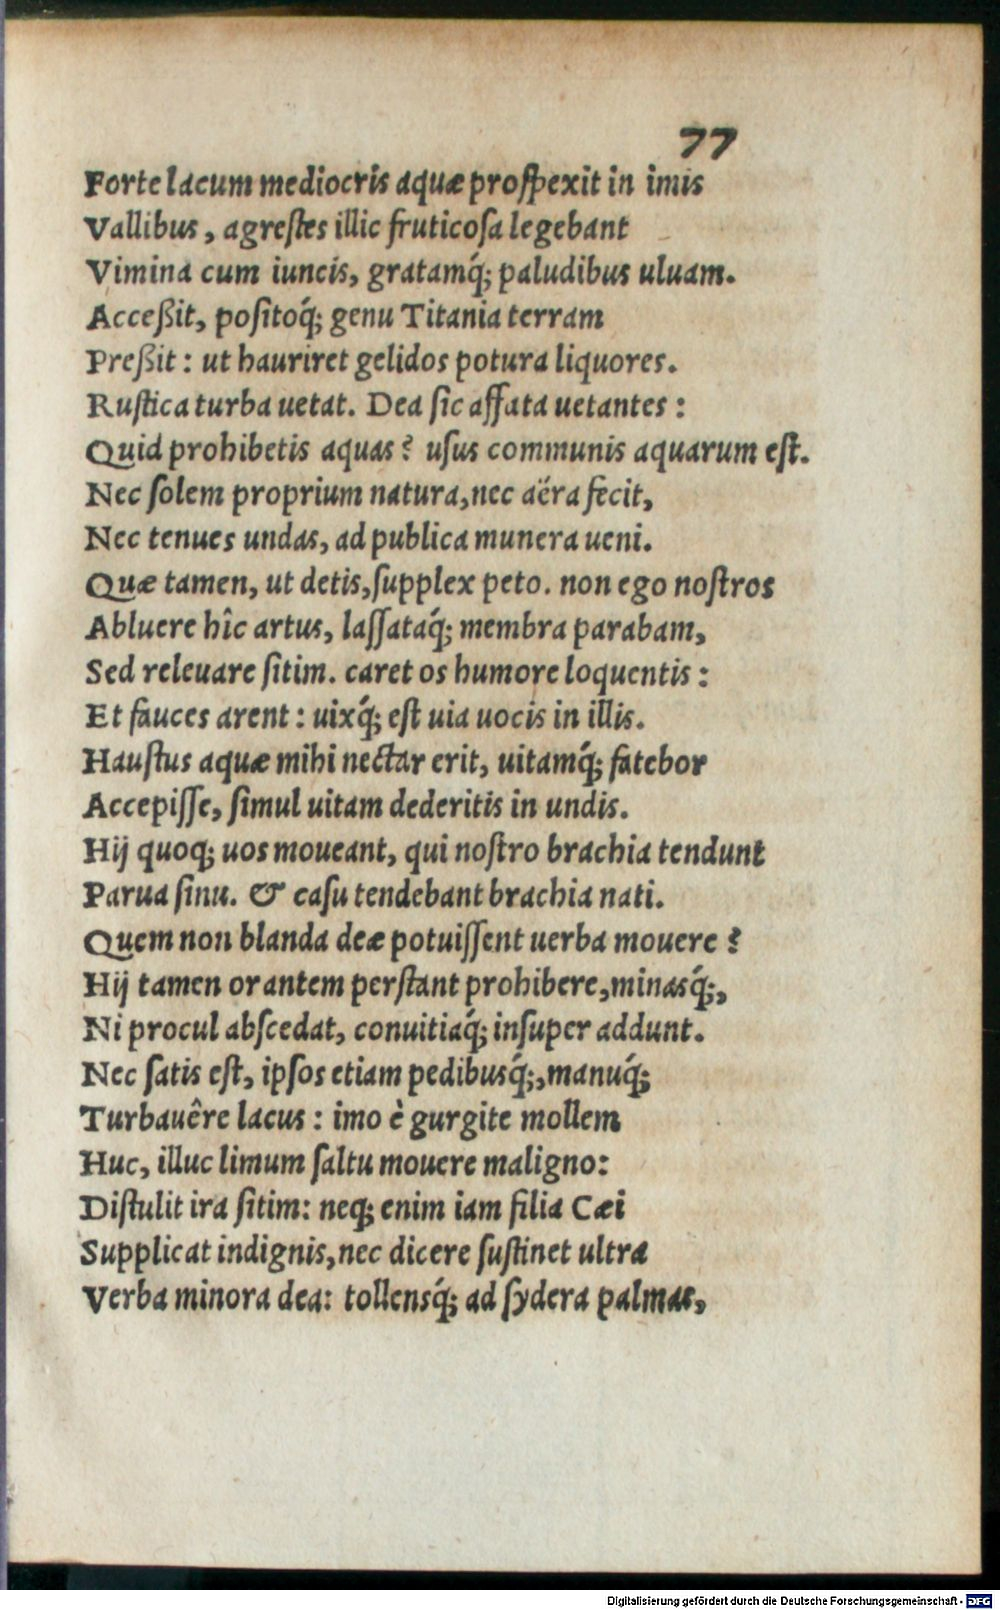 77
Forte lacum mediocris aquæ proſpexit in imis
Vallibus, agreſtes illic fruticoſa legebant
Vimina cum iuncis, gratamq́; paludibus uluam.
Acceßit, poſitoq́; genu Titania terram
Preßit: ut hauriret gelidos potura liquores.
Ruſtica turba uetat. Dea ſic affata uetantes:
Quid prohibetis aquas? uſus communis aquarum eſt.
Nec ſolem proprium natura, nec aëra fecit,
Nec tenues undas, ad publica munera ueni.
Quæ tamen, ut detis, ſupplex peto. non ego noſtros
Abluere hîc artus, laſſataq́; membra parabam,
Sed releuare ſitim. caret os humore loquentis:
Et fauces arent: uixq́; eſt uia uocis in illis.
Hauſtus aquæ mihi nectar erit, uitamq́; fatebor
Accepiſſe, ſimul uitam dederitis in undis.
Hij quoq; uos moueant, qui noſtro brachia tendunt
Parua ſinu. & caſu tendebant brachia nati.
Quem non blanda deæ potuiſſent uerba mouere?
Hij tamen orantem perſtant prohibere, minasq́;,
Ni procul abſcedat, conuitiaq́; inſuper addunt.
Nec ſatis eſt, ipſos etiam pedibusq́;, manuq́;
Turbauêre lacus: imo è gurgite mollem
Huc, illuc limum ſaltu mouere maligno:
Diſtulit ira ſitim: neq; enim iam filia Cæi
Supplicat indignis, nec dicere ſuſtinet ultra
Verba minora dea: tollensq́; ad ſydera palmas,
Digitalisierung gefördert durch die Deutsche Forschungsgemeinschaft - DFG